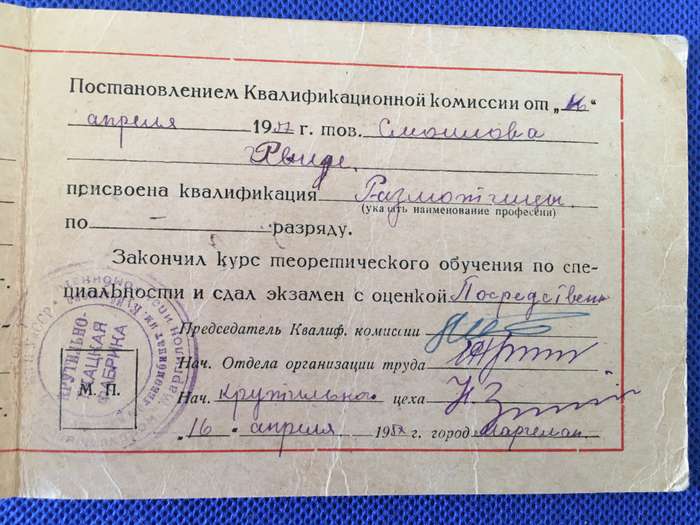 Постановлением Квалификационной комиссии от „16“
апреля 1952 г. тов. Смоилова
присвоена квалификация Размотчицы
(указать наименование професеии)
по — разряду.
Закончил курс теоретического обучения по спе-
циальности и сдал экзамен с оценкой Посредствен
Председатель Квалиф. комиссии
Нач. Отдела организации труда
Нач. крутильного цеха
„16“ апреля 1952 г. город Маргелан.
КРУТИЛЬНО-
ТКАЦКАЯ
ФАБРИКА
М. П.